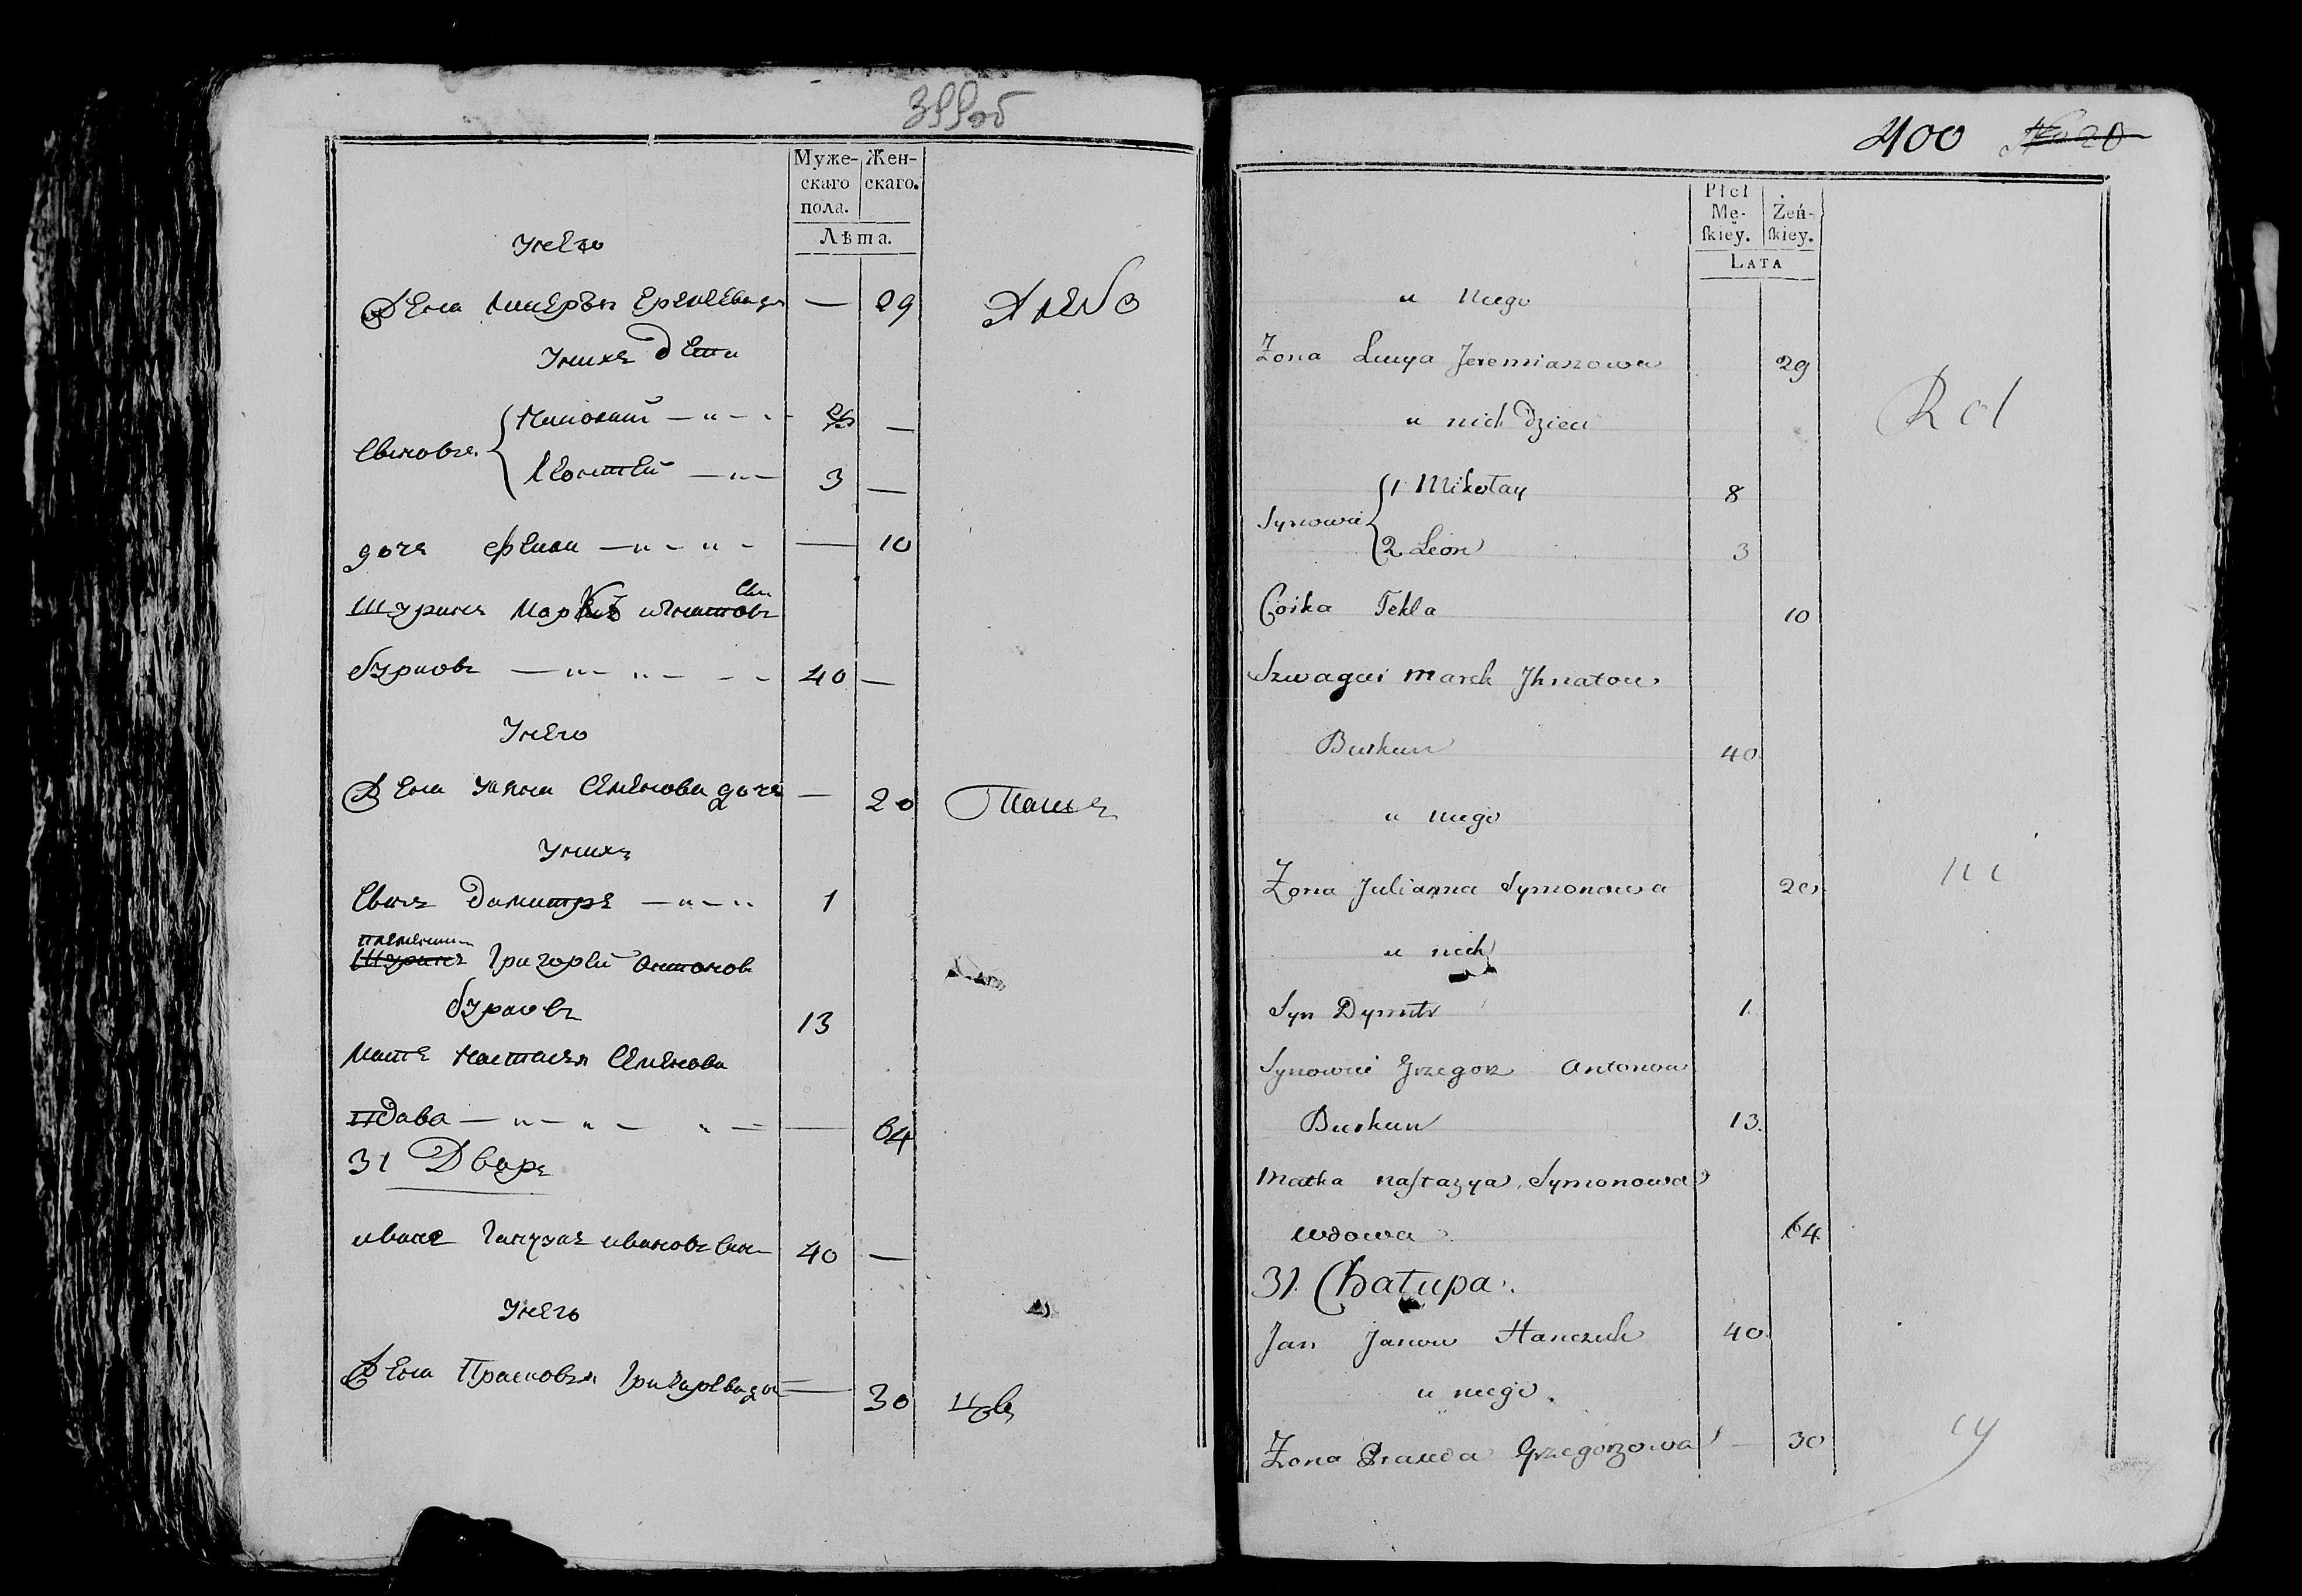 399об
Муже-
скаго
пола.
Жен-
скаго.
Лѣта.
У него
Жена Еремеева до 29
Хлебо
У нихъ дети
Сыновя
Николай
Леонтей 3
дочь Фекла 10
Шуринъ Марко Игнатовъ Сы
Бурковъ 40
У него
Жена Уляна Семенова дочь 20
У нихъ
Сынъ Дамитръ 1
племянни Григорей Антоновъ
Бурковъ 13
Мать Настасья Семенова
вдава 64
31 Дворъ
Иванъ Ганчукъ Ивановъ Сын 40
У него
Жена Прасковья Григорева до 30
400 No 20
Płci
Mę-
ſkiey.
Żeń-
ſkiey.
LATA
u Niego
Żona Jeremiaszowa 29
u nich Dzieci
Rol
Synowie
1 Mikołay 8
2 Leon 3
Corka Tekla 10
Szwagier Marek Jhnatow
Burkun 40
u niego
Żona Julianna Symonowa 20
u nich
Syn Dymitr 1
Synowiec Grzegorz Antonow
Burkun 13.
Matka Nastazya Symonowa
wdowa 64
31 Chałupa.
Jan Janow Hanczuk 40
u niego.
Żona Grzegorzowa 30